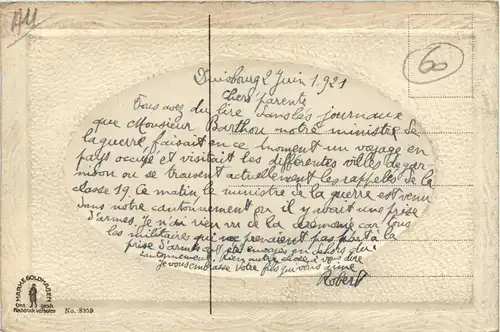 All
60
Duisbourg 2 Juin 1.921
Chers parents
Vous avez du lire dans les journaux
que Monsieur Barthou notre ministre de
la guerre, faisait en ce moment un voyage en
pays occupé et visitait les differentes villes de gar-
nison ou se trouvent actuellement les rappelés de la
classe 19. Ce matin le ministre de la guerre est venu
dans notre cantonnement ou il y avait une prise
d'armes. Je n'ai rien vu de la cérémonie car tous
les militaires qui ne prenaient pas part à la
prise d'armes ont été envoyés en dehors du
cantonnement. Rien autre chose à vous dire
Je vous embrasse Votre fils qui vous aime
Robert
MARKE GOLDHASEN
Ges. gesch.
Nachdruck verboten
No. 3359